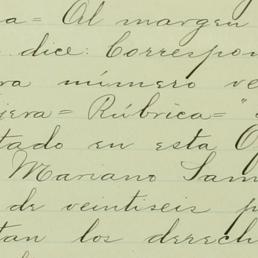 a= Al margen
dice: Correspon
ra número ve
jera= Rúbrica= "
tado en esta O
Mariano Sam
de veintiseis p
tan los derech